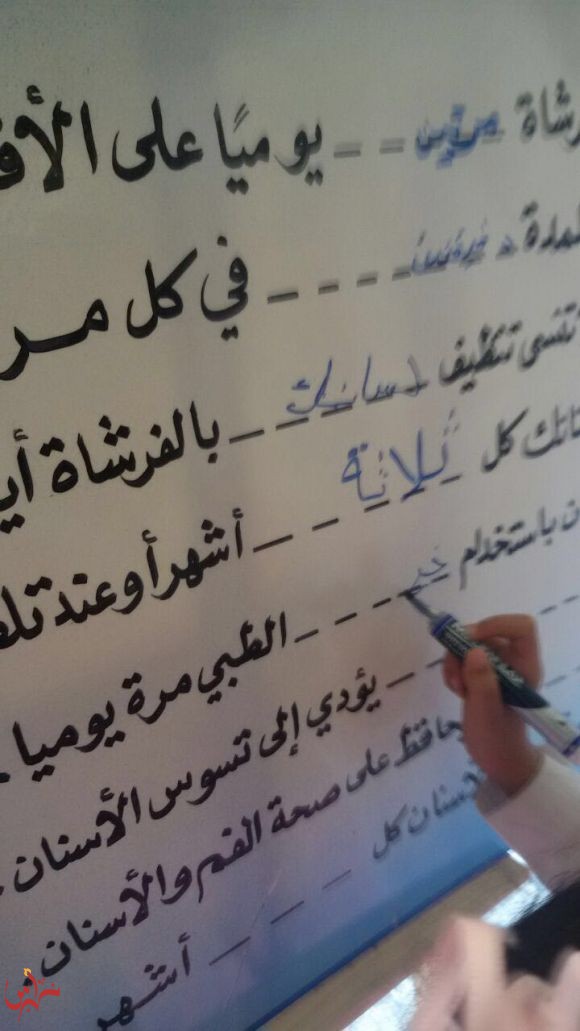 رشاة مرتين يوميًا على الأق
لمدة في كل مر
تنسى تنظيف لسانك بالفرشاة أي
نانك كل ثلاثة أشهر أو عند تلف
ن باستخدام خي الطبي مرة يوميا
يؤدي إلى تسوس الأسنان
حافظ على صحة الفم والأسنان.
لأسنان كل أشهر